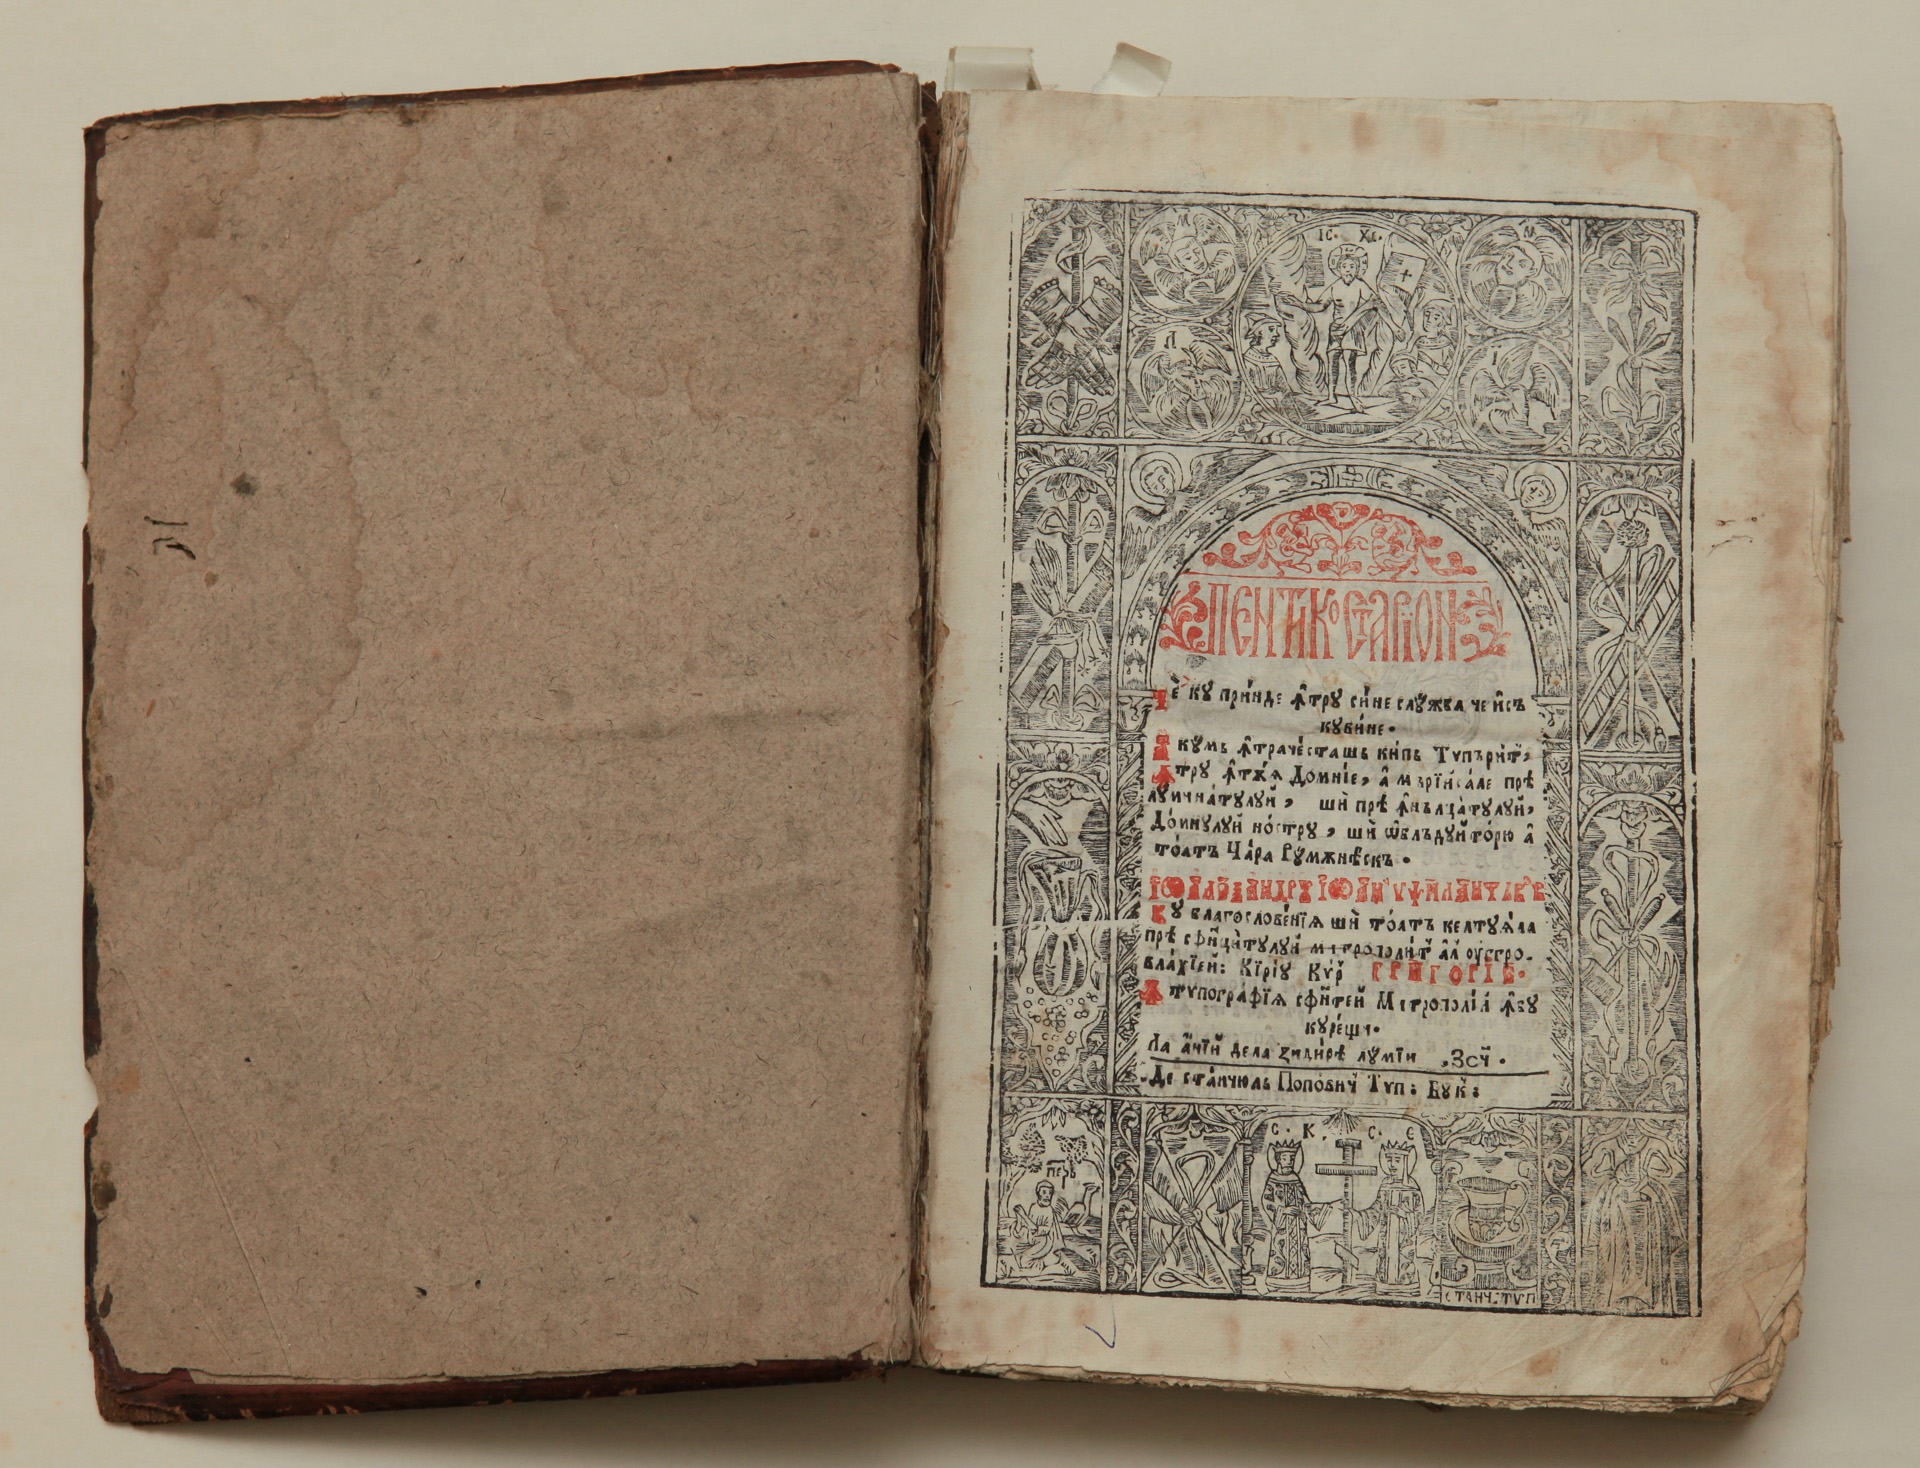 М
ІС. ХС.
Л
ПЕНТИКОСТАРИОН
Че ку при́нде ꙟ҆тру си́не слꙋжба че и҆съ
кꙋви́не.
Акꙋмь ꙟ҆трачѣсташь кипь Тѵпърит,
Ꙟтру ꙟ҆тѫѧ Домніе, а҆ мърі́и сале прѣ
лꙋмина́тꙋлꙋй, шѝ прѣ ꙟ҆нълца́тꙋлꙋй,
До́мнꙋлꙋй но́стрꙋ, шѝ ѡ҆блъдꙋито́рю а҆
то́атъ Ца́ра Рꙋмѫнѣскъ.
Іѡ Алеѯандрꙋ Іѡан ѵѱилант ВВ
Кꙋ благословеніѧ шѝ то́атъ келтꙋѧла
прѣ сфи҆нци́тꙋлꙋй митрополи́т а҆л ѹ҆нгро-
вла́хїей: Кѵ́рїꙋ Кѵ́р ГРИГОРІЕ.
Ꙟ тѵпогра́фїѧ сфи҆нтей Митрополі́й ꙟ҆бꙋ
кꙋре́щи.
Ла а҆нїй дела зиди́рѣ лꙋмїи ҂ЗСИ.
Де ста́нчюль Попо́вич Тѵп: Бꙋк:
С. К. С. Є
петрь
СТАНЧ. ТѴП